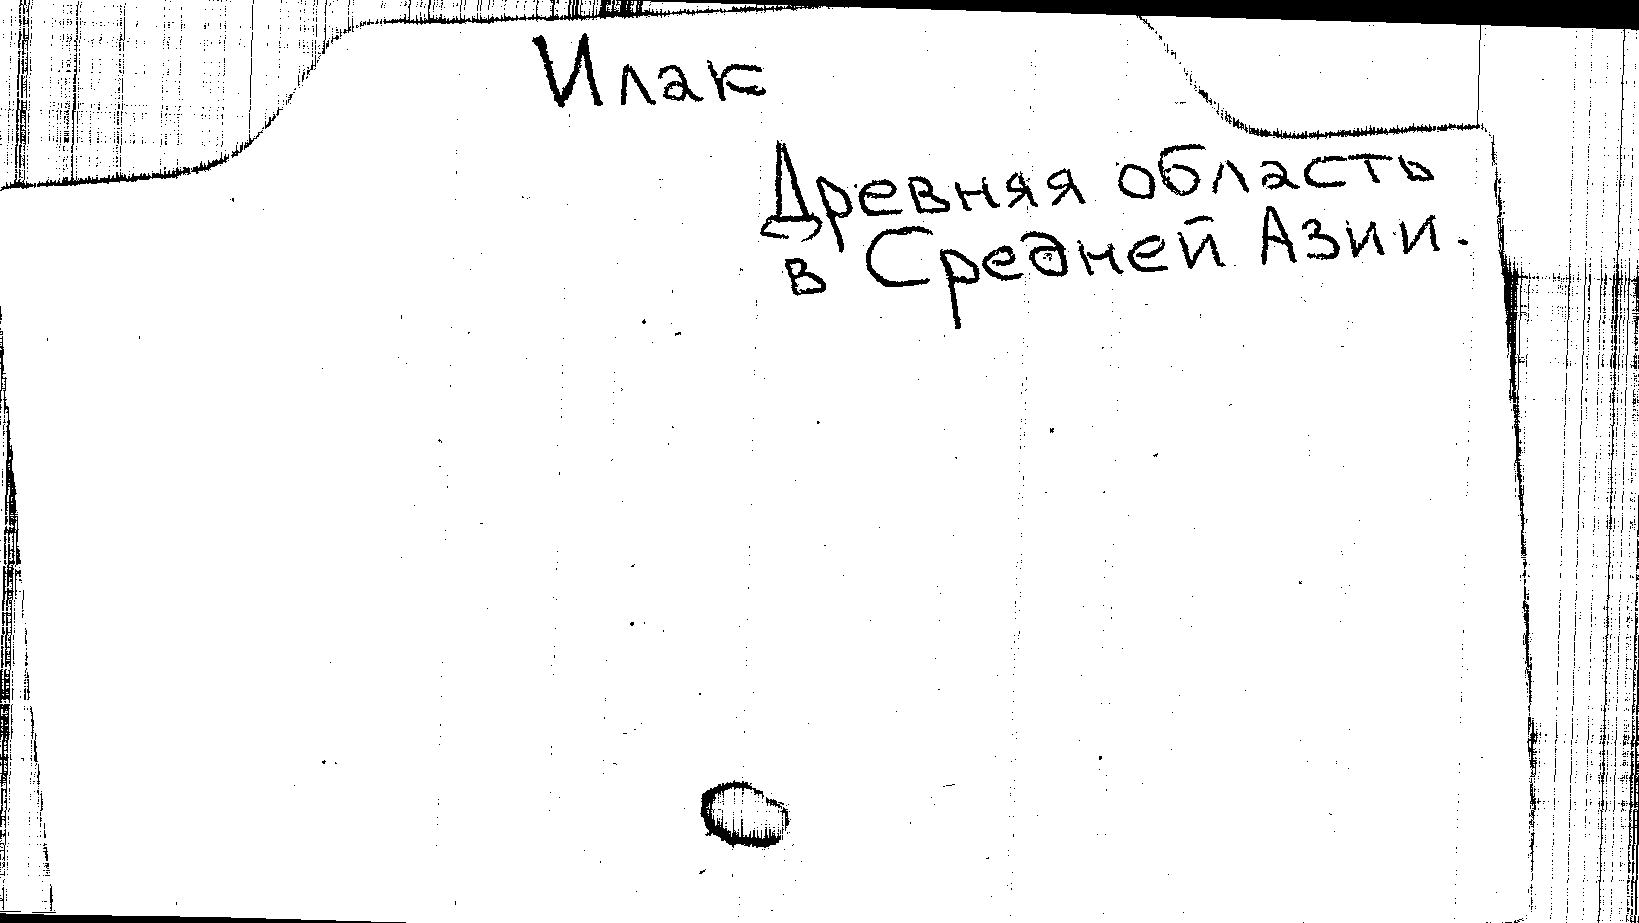 Илак
Древняя область
в Средней Азии.